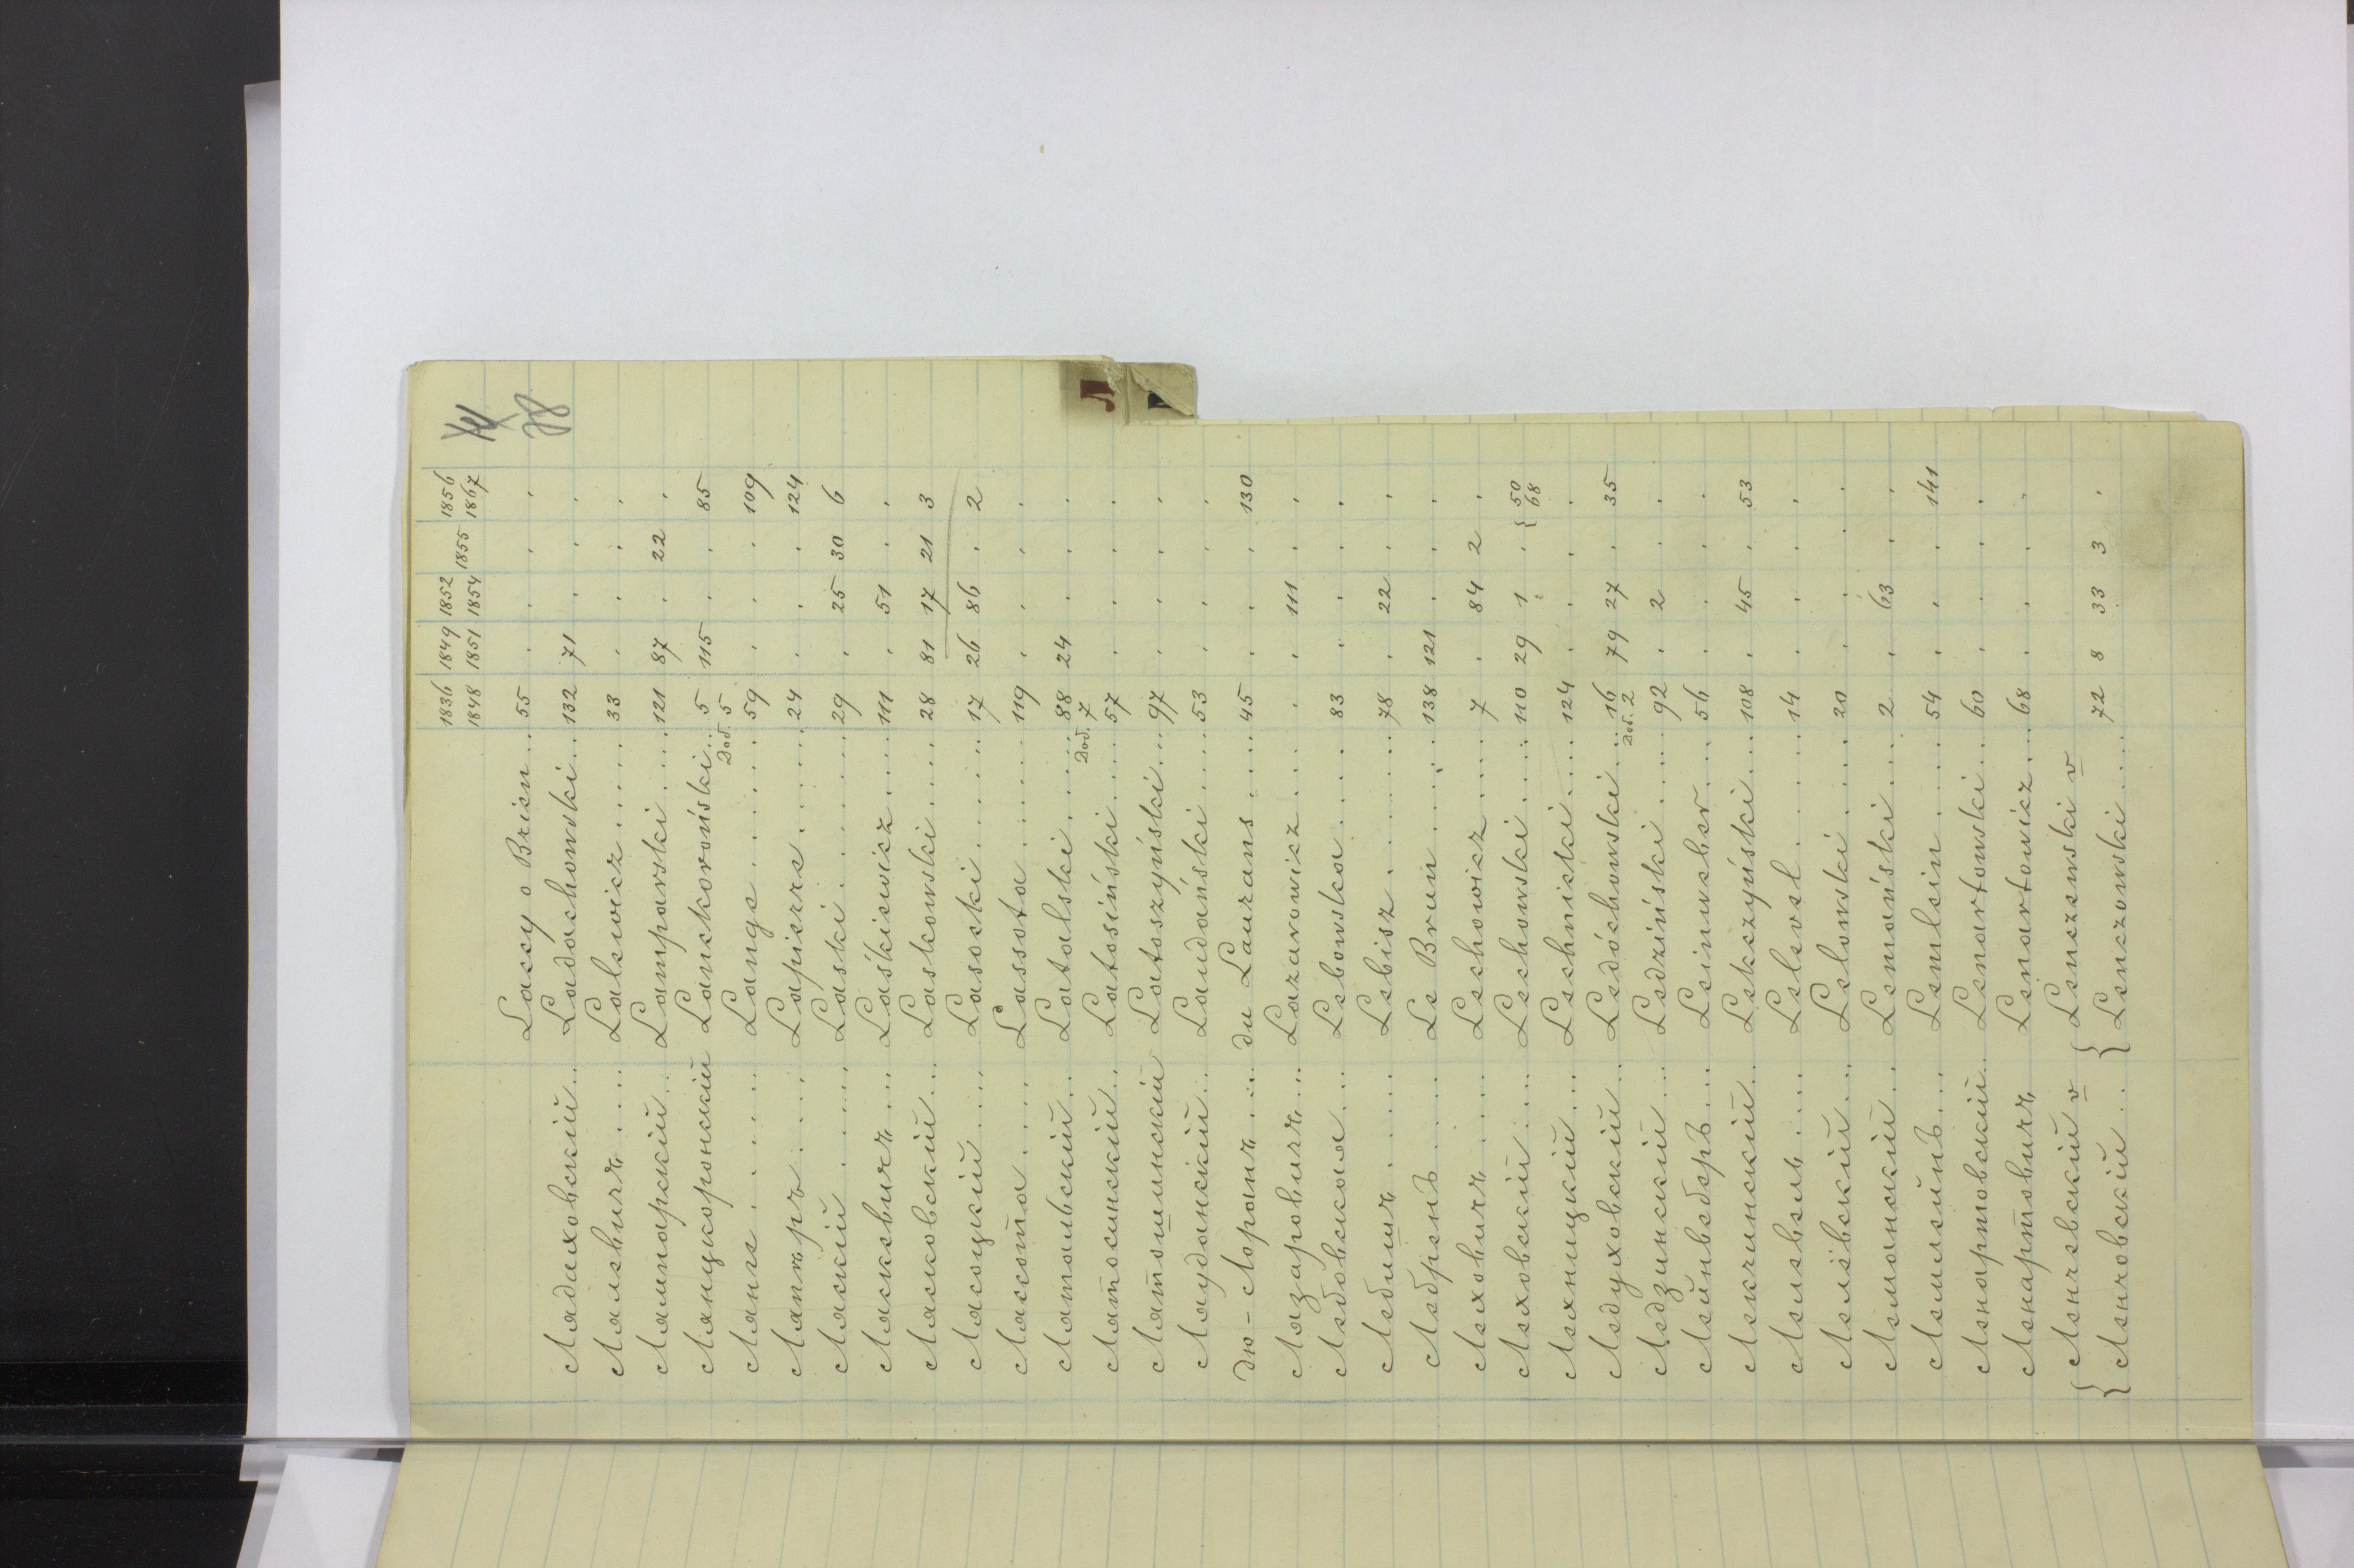 1836 1849 1852 1855 1856
1848 1851 1854 1867
Lacey o Brien .. 55 . . . .
Ладиховскій .. Ladóchowski ... 132 71 . . .
Лалевичъ .... Lalewicz ..... 33 . . . .
Лампарскій .. Lamparski .... 121 87 . 22 .
Ланцкоронскій Lanckoroński ... 5 115 . . 85
Доб. 5
Ланге ...... Lange ...... 59 . . . 109
Лапьеръ .... Lapierre ..... 24 . . . 124
Ласкій ..... Laski ....... 29 . 25 30 6
Ласкевичъ ... Laśkiewicz .... 111 . 51 . .
Ласковскій ... Laskowski .... 28 81 17 21 3
Ласоцкій .... Lasocki ...... 17 26 86 . 2
Лассота .... Lassota ...... 119 . . . .
Латальскій .. Latalski ..... 88 24 . . .
Доб. 7
Латосинскій .. Latosiński .... 57 . . . .
Латошинскій Latoszyński ... 97 . . . .
Лауданскій .. Laudański .... 53 . . . .
дю-Лоранъ .... du Laurans .... 45 . . . 130
Лазаровичъ ... Lazarowicz .... . . 111 . .
Лебовская ... Lebowska .... 83 . . . .
Лебишъ ..... Lebisz ...... 78 . 22 . .
Лебренъ .... Le Brun ..... 138 121 . . .
Леховичъ .... Lechowicz .... 7 . 84 2 .
Леховскій .... Lechowski .... 110 29 1 . { 50
68
Лехницкій ... Lechnicki ... 124 . . . .
Ледуховскій .. Ledóchowski ... 16 79 27 . 35
Доб. 2
Ледзинскій ... Ledziński .... 92 . 2 . .
Лейнвеберъ ... Leinweber .... 56 . . . .
Лекчинскій .. Lekczyński ... 108 . 45 . 53
Лелевель .... Lelevel ..... 14 . . . .
Лелёвскій ... Lelowski .... 20 . . . .
Леманскій .. Lemański .... 2 . 63 . .
Лемлейнъ ... Lemlein .... 54 . . . 141
Ленартовскій .. Lenartowski ... 60 . . . .
Ленартовичъ Lenartowicz ... 68 . . . .
{ Ленчевскій v { Lenczewski v
{ Ленчовскій .. { Lenczowski .... 72 8 33 3 .
Л